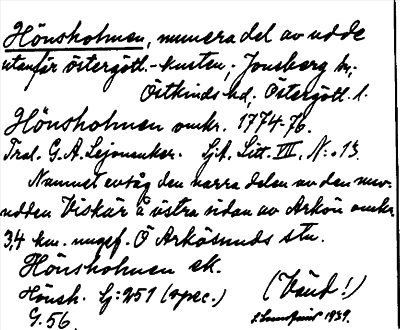 Hönsholmen, numera del av udde
utanför östergötl.-kusten; Jonsberg sn,
Östkinds hd, Östergötl. l.
Hönsholmen omkr. 1774-76.
Thal. G. A. Lejonanker. Sj.A. Litt. VII, N:o 13.
Namnet avsåg den norra delen av den
udden Viskär å östra sidan av Arkön omkr.
3,4 km. ungef. Ö Arkösunds stn.
Hönsholmen ek.
Hönsh. Sj: 251 (spec.)
(Vänd!)
G. 56.
1939.